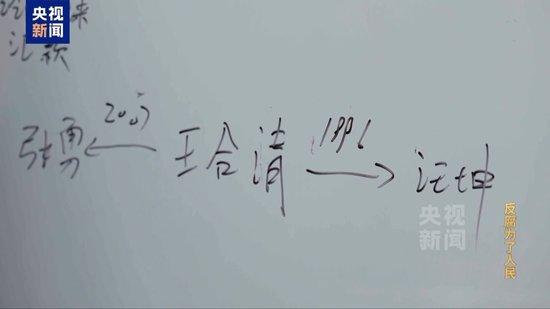 央视新闻
来
汇款
张勇 ← 2007 王合清 1996 → 汪坤
央视新闻
反腐为了人民